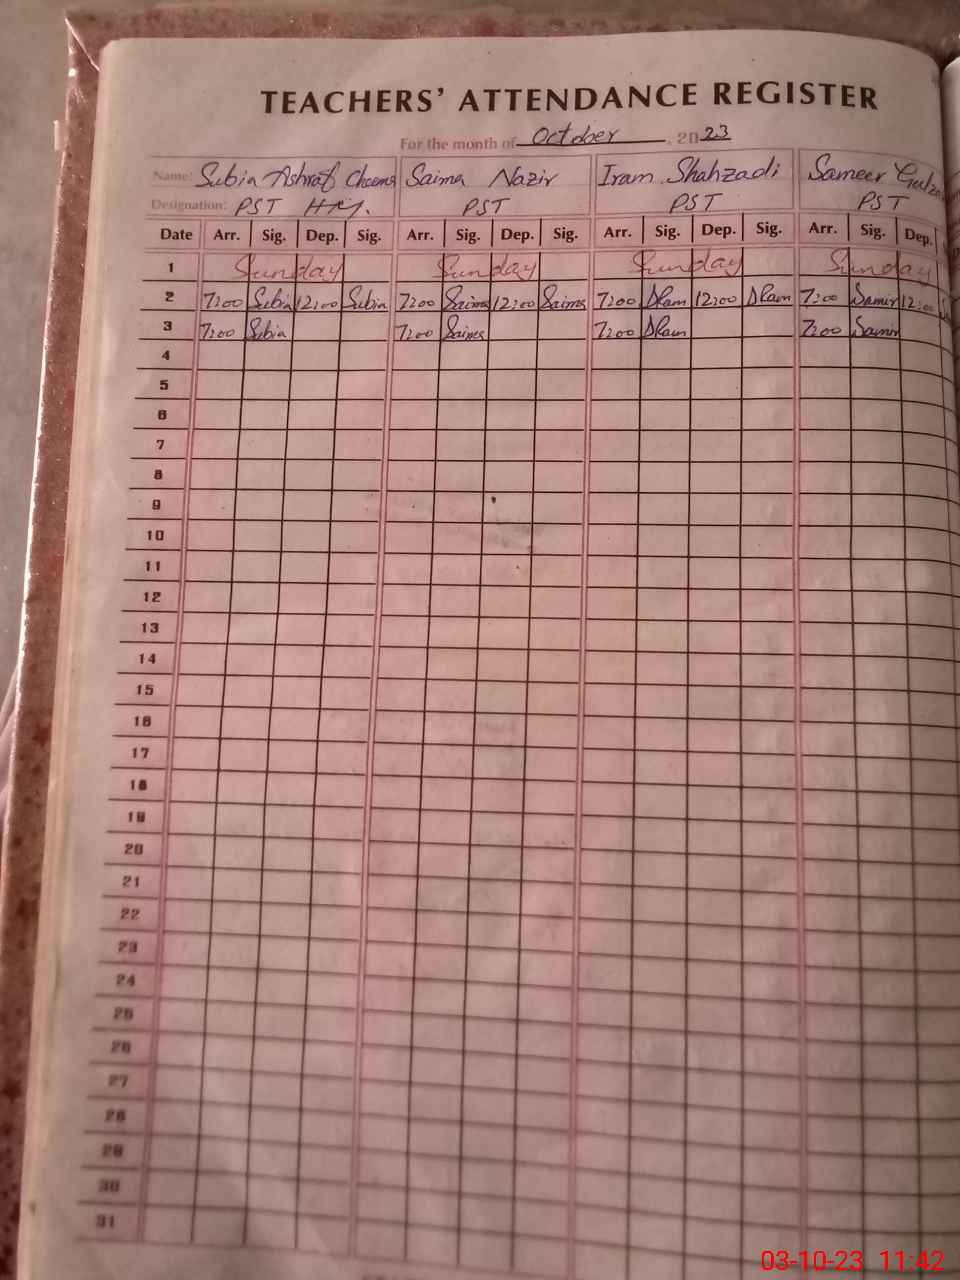 TEACHERS' ATTENDANCE REGISTER
For the month of October, 2023
Name: Subia Ashraf Cheema Saima Nazir Iram Shahzadi Sameer
Designation: PST H.T. PST PST PST
Date Arr. Sig. Dep. Sig. Arr. Sig. Dep. Sig. Arr. Sig. Dep. Sig. Arr. Sig. Dep.
1 Sunday Sunday Sunday Sunday
2 7:00 Subia 12:00 Subia 7:00 Saima 12:00 Saima 7:00 Iram 12:00 Iram 7:00 Samir 12:00
3 7:00 Subia 7:00 Saima 7:00 Iram 7:00 Samir
4
5
6
7
8
9
10
11
12
13
14
15
16
17
18
19
20
21
22
23
24
25
26
27
28
29
30
31
03-10-23 11:42